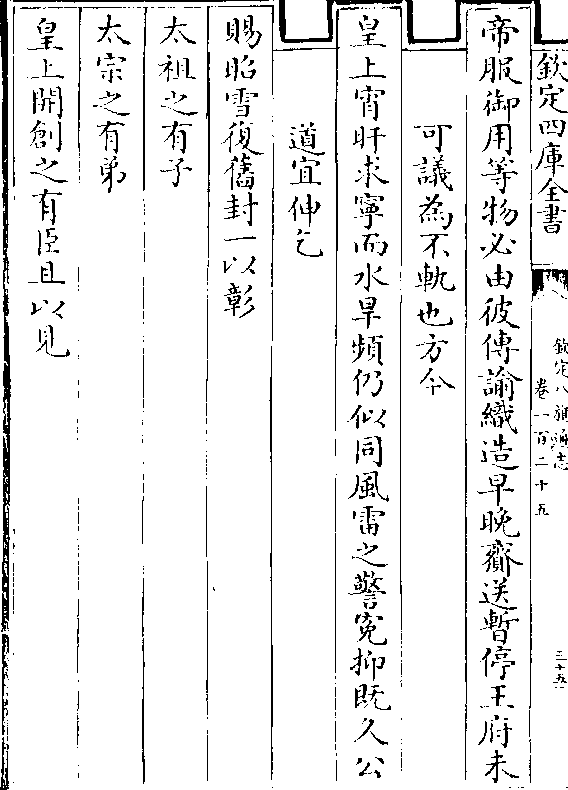 欽定四庫全書
欽定八旗通志
卷一百二十五
三十五
帝服御用等物必由彼傳諭織造早晚齎送暫停王府未
可議為不軌也方今
皇上宵旰求寧而水旱頻仍似同風雷之警寃抑既久公
道宜伸乞
賜昭雪復舊封一以彰
太祖之有子
太宗之有弟
皇上開創之有臣且以見